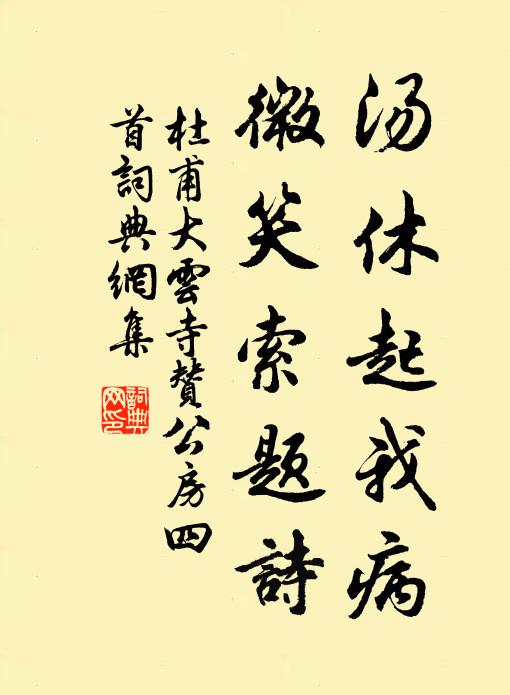 汤休起我病
微笑索题詩
杜甫大雲寺贊公房四
首詞典網集
詞典
网印